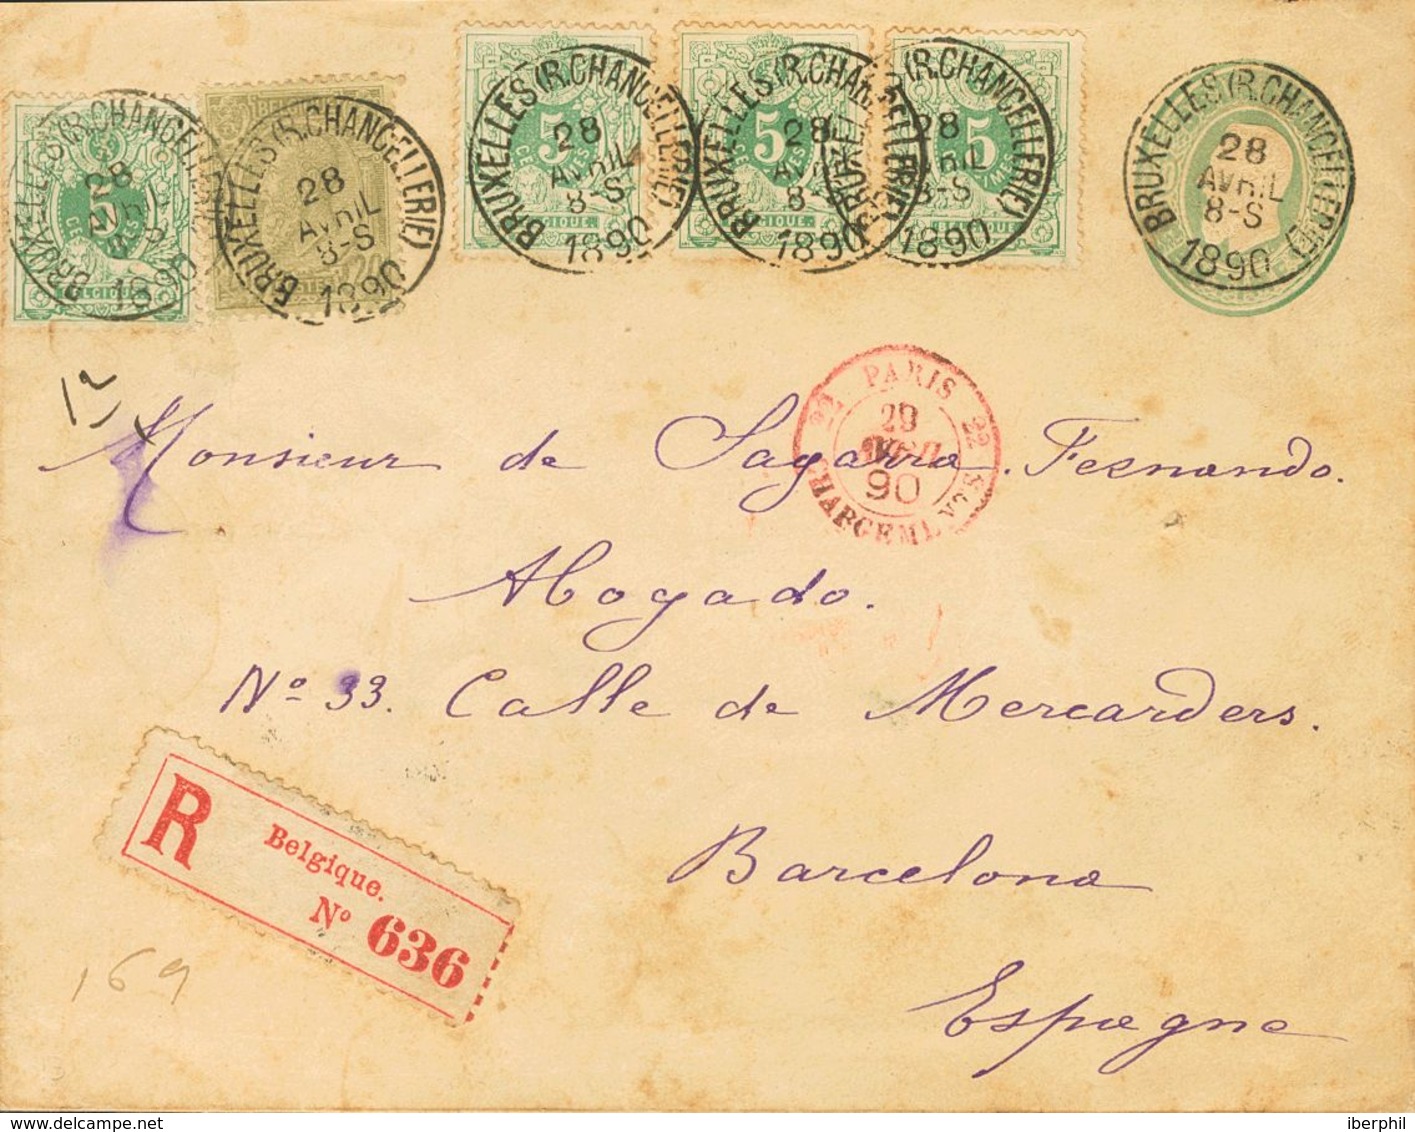 BRUXELLES (R. CHANCELLERIE)
28
AVRIL
8-S
1890
BRUXELLES (R. CHANCELLERIE)
28
AVRIL
8-S
1890
BRUXELLES (R. CHANCELLERIE)
28
AVRIL
8-S
1890
BRUXELLES (R. CHANCELLERIE)
28
AVRIL
8-S
1890
BRUXELLES (R. CHANCELLERIE)
28
AVRIL
8-S
1890
BRUXELLES (R. CHANCELLERIE)
28
AVRIL
8-S
1890
5
BELGIQUE
20
5
5
5
12
PARIS
22 22
29
90
CHARGEMENTS
Monsieur de Sagarra. Fernando.
Abogado.
Nº 33. Calle de Mercarders.
Barcelona
Espagne
R
Belgique.
Nº 636
169
www.delcampe.net
iberphil